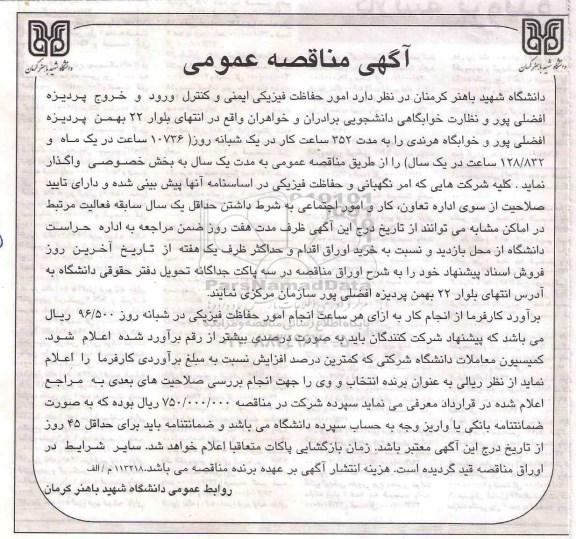 آگهی مناقصه عمومی
دانشگاه شهید باهنر کرمان
دانشگاه شهید باهنر کرمان
دانشگاه شهید باهنر کرمنان در نظر دارد امور حفاظت فیزیکی ایمنی و کنترل ورود و خروج پردیزه
افضلی پور و نظارت خوابگاهی دانشجویی برادران و خواهران واقع در انتهای بلوار ۲۲ بهمن پردیزه
افضلی پور و خوابگاه هرندی را به مدت ۳۵۲ ساعت کار در یک شبانه روز( ۱۰۷۳۶ ساعت در یک ماه و
۱۲۸/۸۳۲ ساعت در یک سال) را از طریق مناقصه عمومی به مدت یک سال به بخش خصوصی واگذار
نماید . کلیه شرکت هایی که امر نگهبانی و حفاظت فیزیکی در اساسنامه آنها پیش بینی شده و دارای تایید
صلاحیت از سوی اداره تعاون، کار و امور اجتماعی به شرط داشتن حداقل یک سال سابقه فعالیت مرتبط
در اماکن مشابه می توانند از تاریخ درج این آگهی ظرف مدت هفت روز ضمن مراجعه به اداره حراست
دانشگاه از محل بازدید و نسبت به خرید اوراق اقدام و حداکثر ظرف یک هفته از تاریخ آخرین روز
فروش اسناد پیشنهاد خود را به شرح اوراق مناقصه در سه پاکت جداگانه تحویل دفتر حقوقی دانشگاه به
آدرس انتهای بلوار ۲۲ بهمن پردیزه افضلی پور سازمان مرکزی نمایند.
برآورد کارفرما از انجام کار به ازای هر ساعت انجام امور حفاظت فیزیکی در شبانه روز ۹۶/۵۰۰ ریال
می باشد که پیشنهاد شرکت کنندگان باید به صورت درصدی بیشتر از رقم برآورد شده اعلام شود.
کمیسیون معاملات دانشگاه شرکتی که کمترین درصد افزایش نسبت به مبلغ برآوردی کارفرما را اعلام
نماید از نظر ریالی به عنوان برنده انتخاب و وی را جهت انجام بررسی صلاحیت های بعدی به مراجع
اعلام شده در قرارداد معرفی می نماید سپرده شرکت در مناقصه ۷۵۰/۰۰۰/۰۰۰ ریال بوده که به صورت
ضمانتنامه بانکی یا واریز وجه به حساب سپرده دانشگاه می باشد و ضمانتنامه باید برای حداقل ۴۵ روز
از تاریخ درج این آگهی معتبر باشد. زمان بازگشایی پاکات متعاقبا اعلام خواهد شد. سایر شرایط در
اوراق مناقصه قید گردیده است. هزینه انتشار آگهی بر عهده برنده مناقصه می باشد.۱۱۲۲۱۸ م / الف
روابط عمومی دانشگاه شهید باهنر کرمان
ParsNamadData